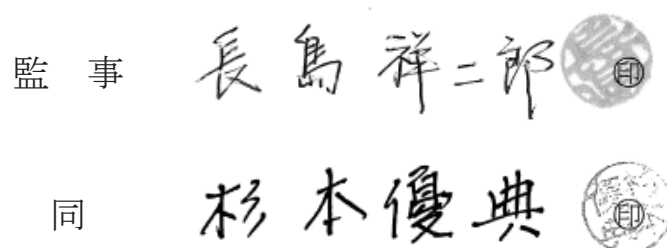 監 事 長島祥二郎 ㊞
同 杉本優典 ㊞